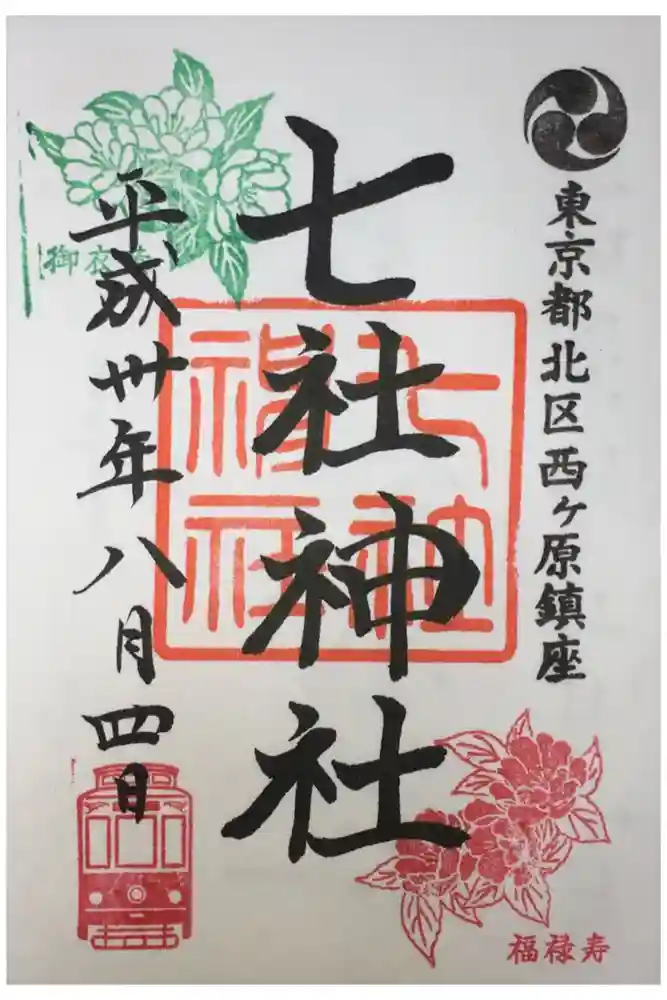 東京都北区西ヶ原鎮座
七社神社
平成卅年八月四日
御衣黄
福禄寿